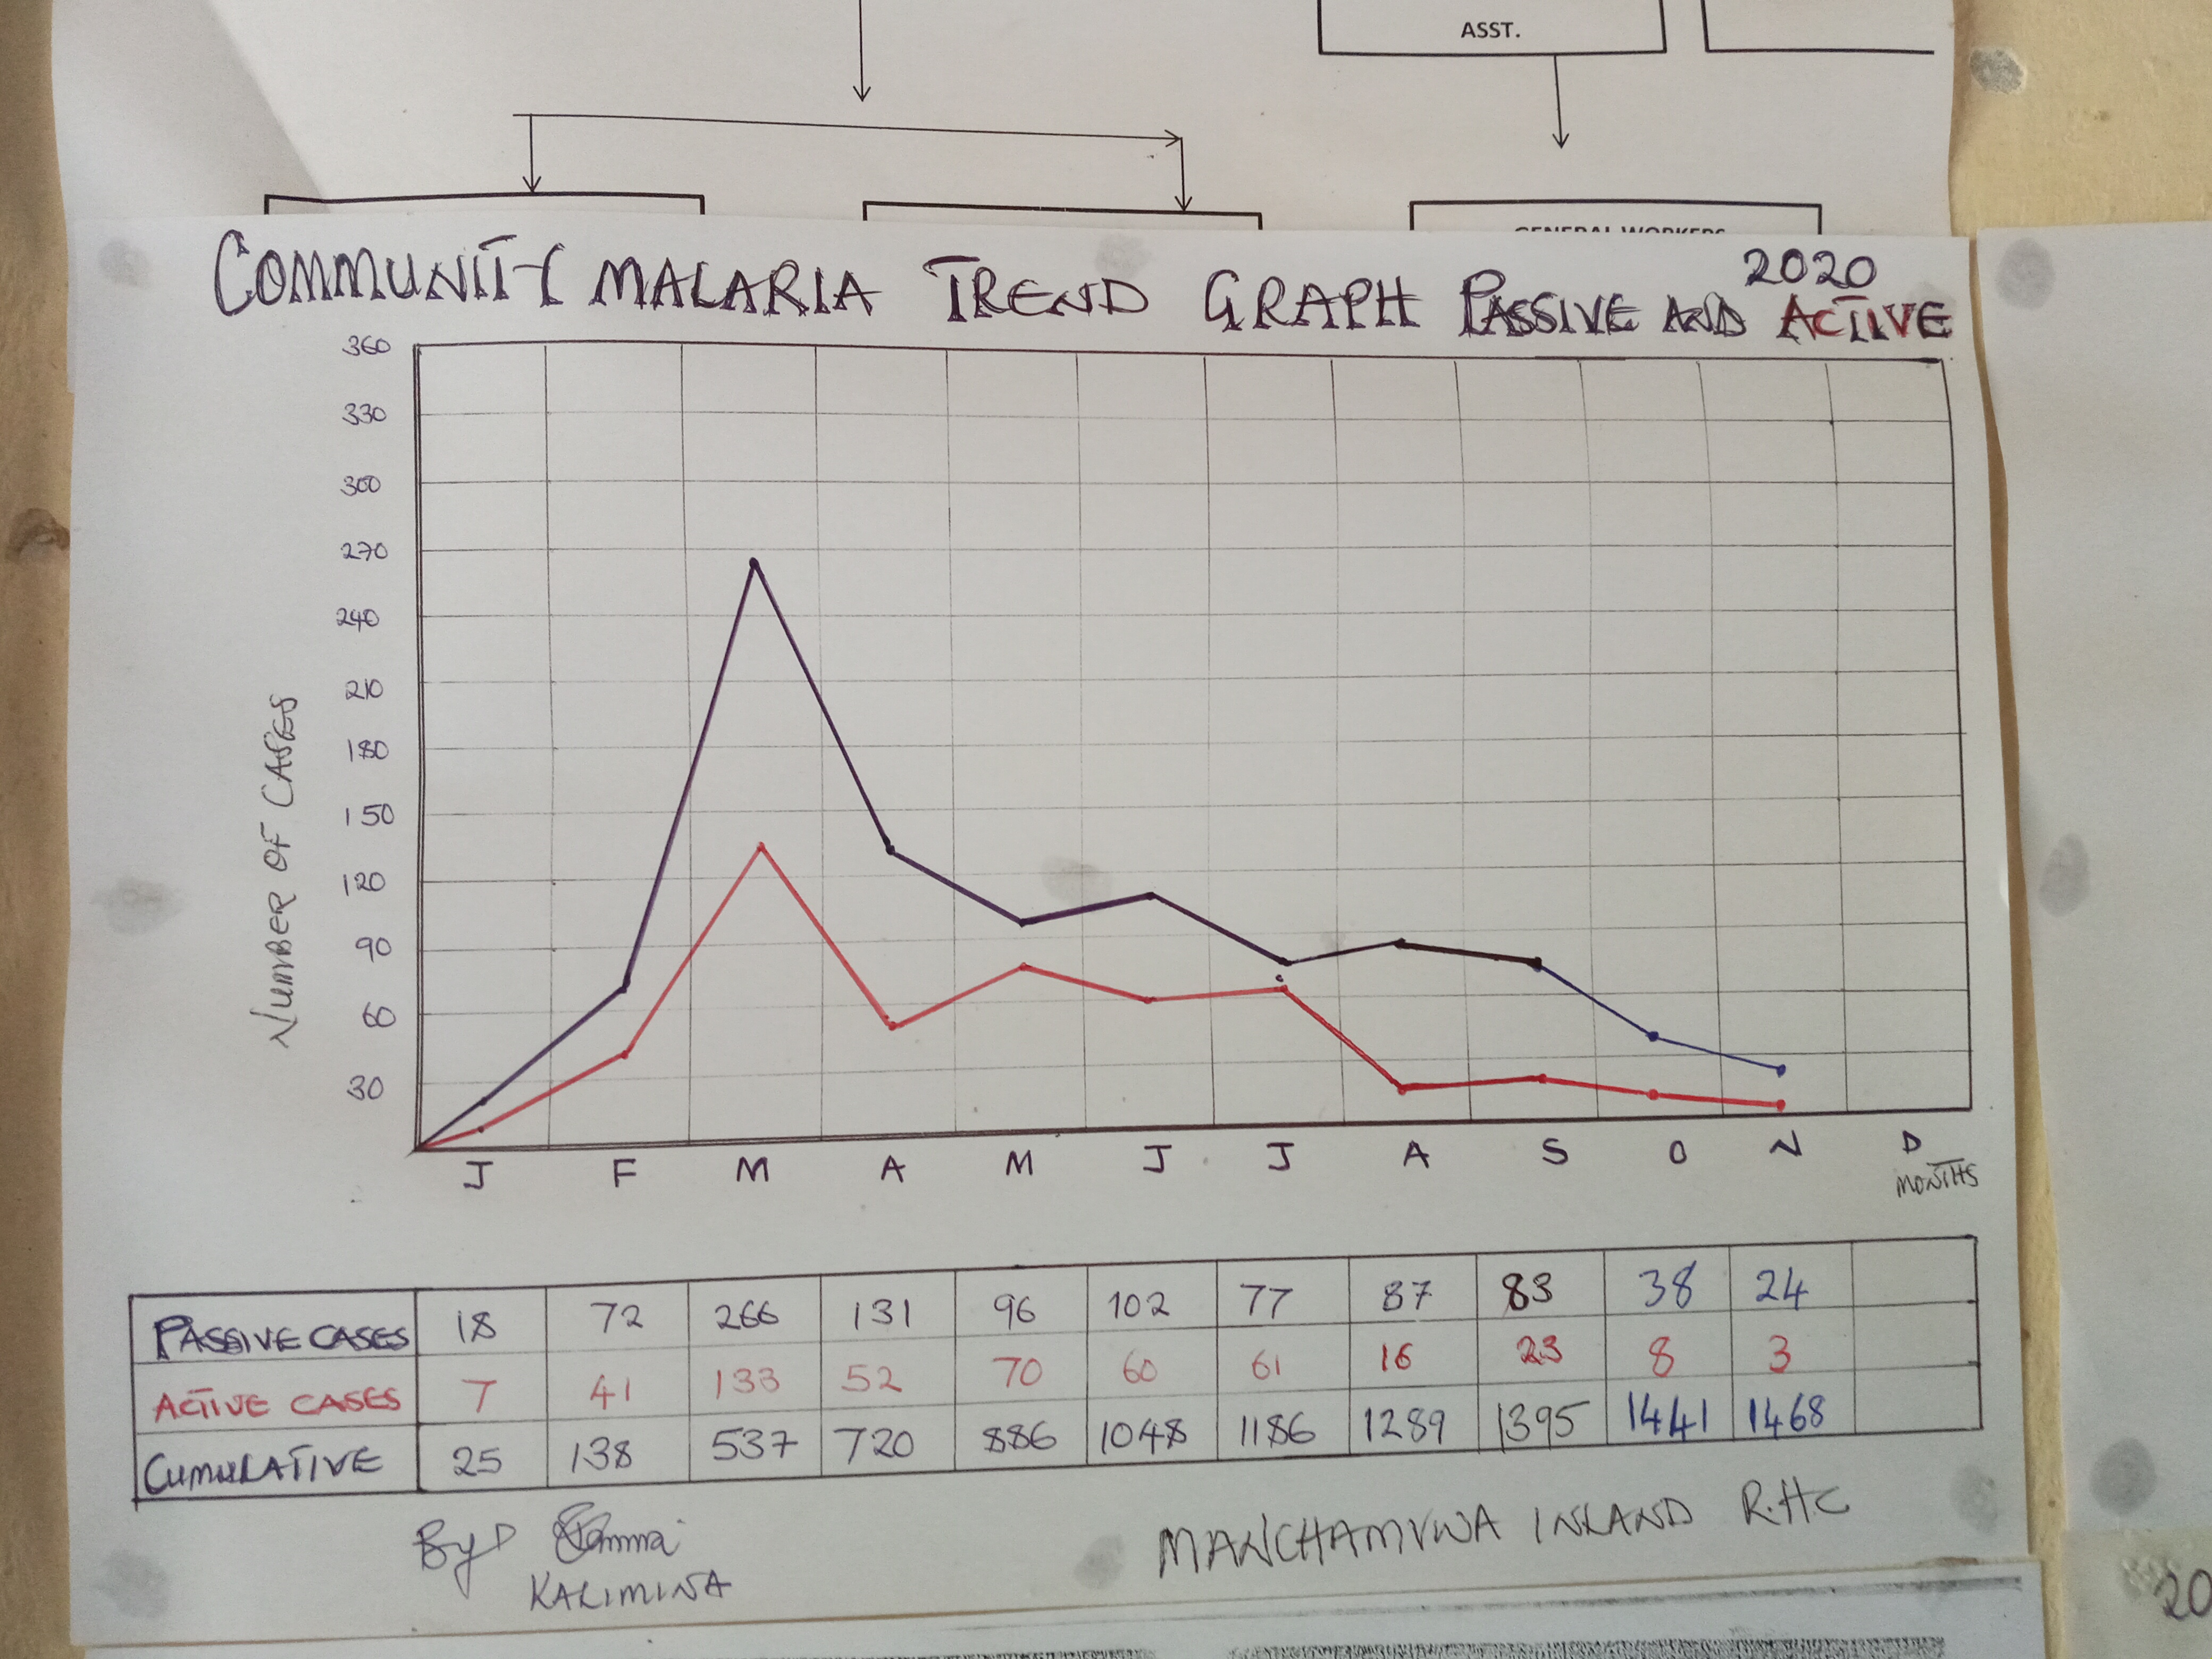 ASST.
GENERAL WORKERS
2020
COMMUNITY MALARIA TREND GRAPH PASSIVE AND ACTIVE
360
330
300
270
240
210
180
150
120
90
60
30
NUMBER OF CASES
J F M A M J J A S O N D
MONTHS
PASSIVE CASES 18 72 266 131 96 102 77 87 83 38 24
ACTIVE CASES 7 41 133 52 70 60 61 16 23 8 3
CUMULATIVE 25 138 537 720 886 1048 1186 1289 1395 1441 1468
By
KALIMINA
MANCHAMVWA INLAND R.H.C
20